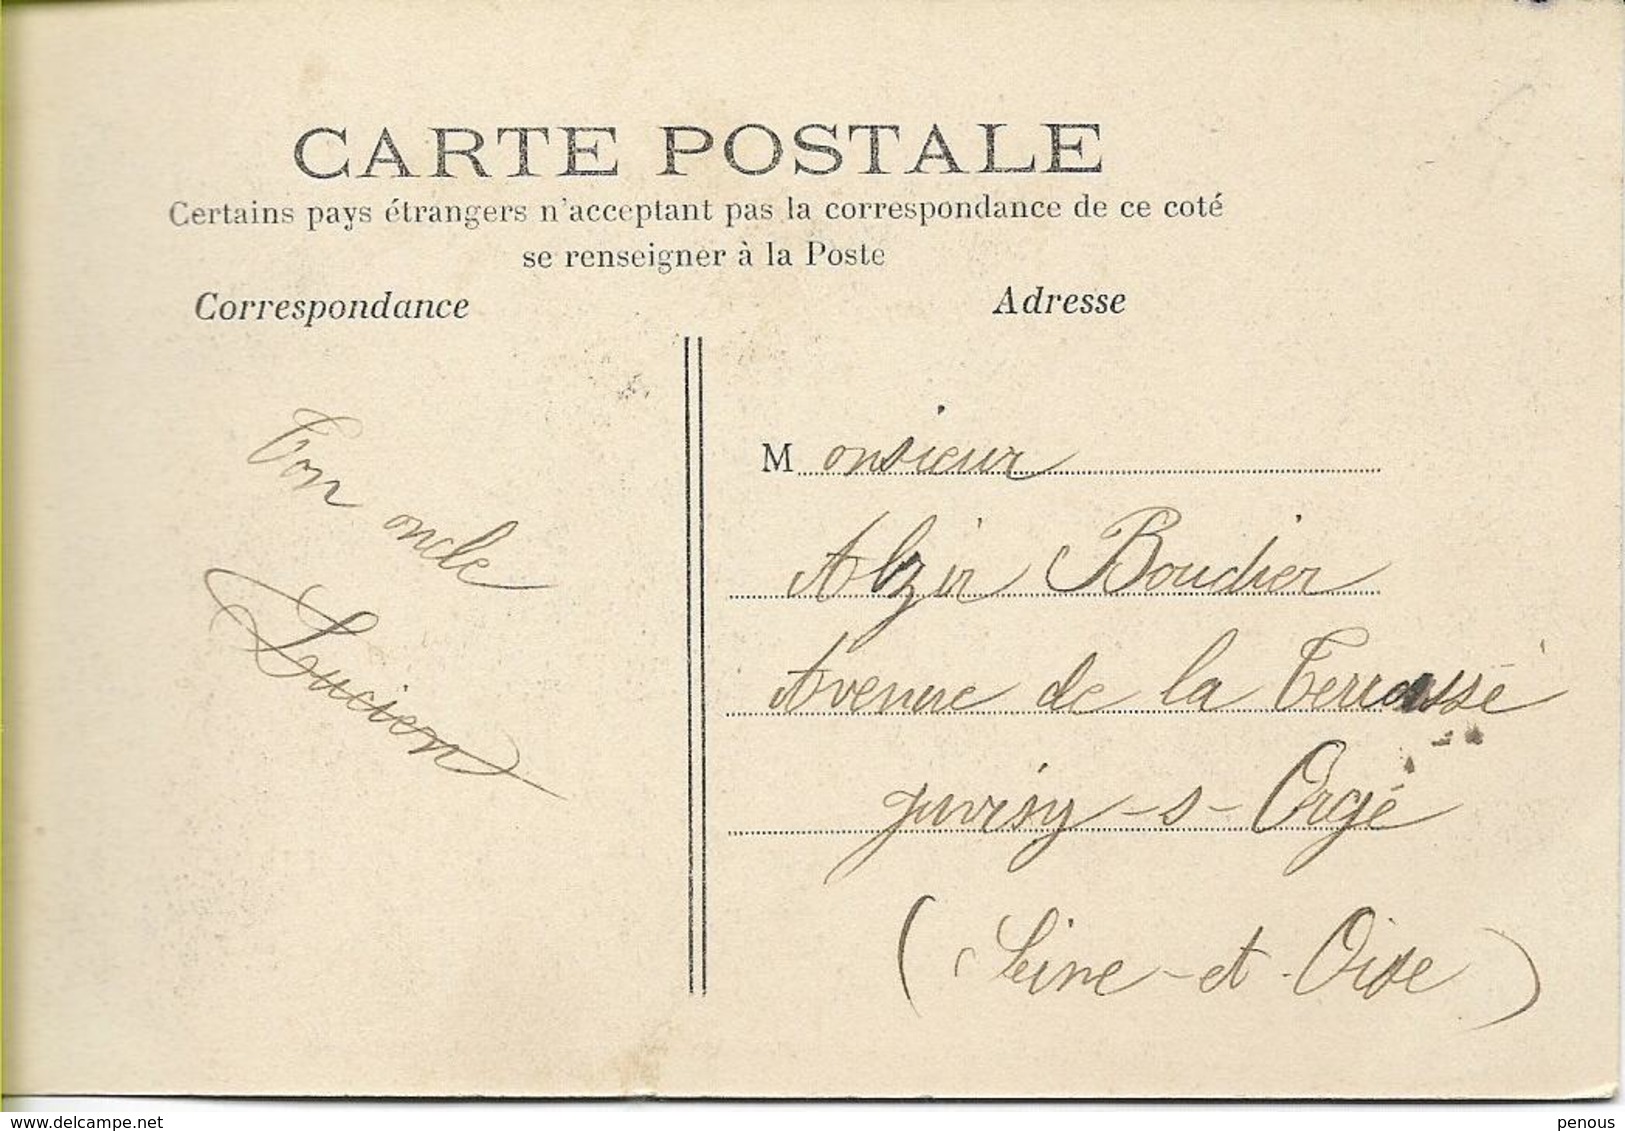 CARTE POSTALE
Certains pays étrangers n'acceptant pas la correspondance de ce coté
se renseigner à la Poste
Correspondance
Adresse
Ton oncle
Lucien
Monsieur
Alzir Boudier
Avenue de la Terrasse
Juvisy-s-Orge
(Seine-et-Oise)
www.delcampe.net
penous